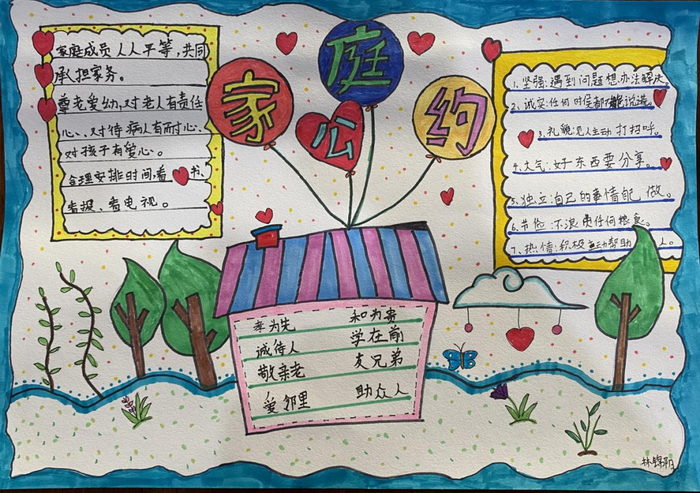 家庭公约
家庭成员人人平等,共同
承担家务。
尊老爱幼,对老人有责任
心、对待病人有耐心、
对孩子有爱心。
合理安排时间,看书、
看报、看电视。
1、坚强:遇到问题想办法解决
2、诚实:任何时侯都不能说谎。
3、礼貌:见人主动打招呼。
4、大气:好东西要分享。
5、独立:自己的事情自己做。
6、节俭:不浪费任何粮食。
7、热情:积极主动帮助人。
孝为先 和为贵
诚待人 学在前
敬亲老 友兄弟
爱邻里 助众人
林锦阳